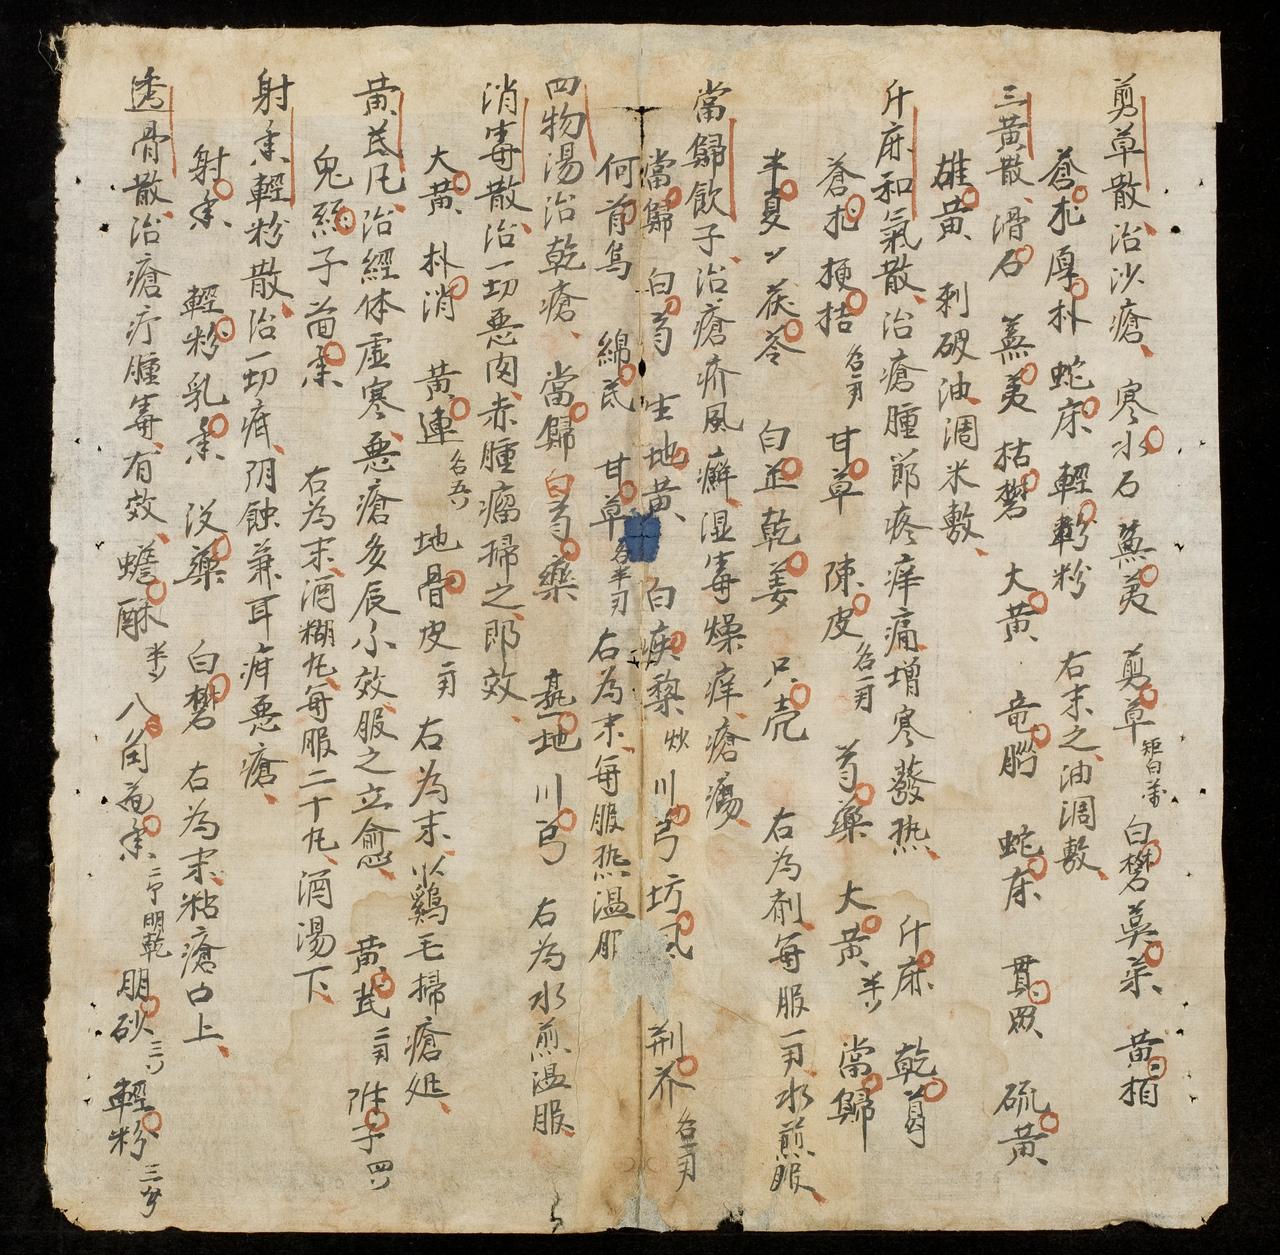 剪草散、治沙瘡、寒水石 蕪荑 剪草 矩白芾 白礬 英茱 黄栢
蒼朮 厚朴 蛇床 輕粉 右末之、油調敷、
三黄散、滑石 蕪荑 枯礬 大黄 竜腦 蛇床 貫眾 硫黄
雄黄 刺破油調米敷、
升麻和氣散、治瘡腫節疼痒痛増寒發热、升麻 乾葛
蒼朮 梗桔 各一刃 甘草 陳皮 各一刃 芍藥 大黄 半 當歸
半夏 茯苓 白芷 乾姜 只壳 右為剤每服一刃水煎服、
當歸飲子治瘡疥風癬、湿毒燥痒瘡瘍、
當歸 白芍 生地黄、白疾黎 炒 川弓 坊風 荆芥 各一刃
何首烏 綿芪 甘草 各半刃 右為末、每服热温服
四物湯治乾瘡、當歸 白芍藥 熟地 川弓 右為水煎温服、
消毒散、治一切悪肉、赤腫瘤掃之、即效、
大黄 朴消 黄連 各五 地骨皮 一刃 右為末、以鷄毛掃瘡処、
黄芪凡、治經体虚寒、悪瘡多辰小效、服之立愈、黄芪 二刃 附子 四
鬼絲子 茴香 右為末、酒糊丸每服二十丸、酒湯下、
射香輕粉散、治一切疽、阴蝕兼耳疳悪瘡、
射香 輕粉 乳香 没藥 白礬 右為末粘瘡口上、
透骨散、治瘡疔腫毒、有效、蟾酥 半 八角茴香 二 明乾 朋砂 三 輕粉 三